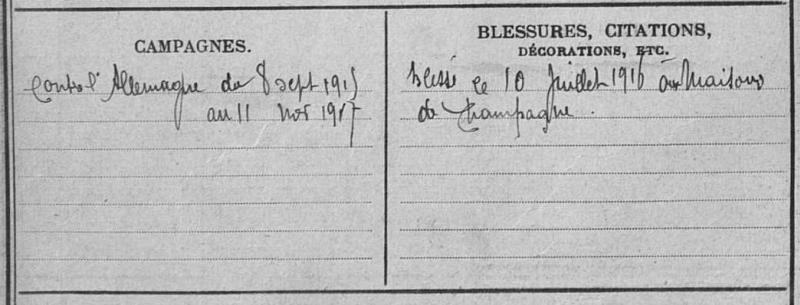 CAMPAGNES.
Contre l'Allemagne du 8 sept 1915
au 11 nov 1917
BLESSURES, CITATIONS,
DÉCORATIONS, ETC.
blessé le 10 Juillet 1916 aux Maisons
de Champagne.